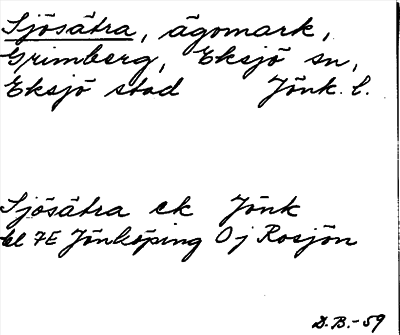 Sjösätra, ägomark,
Grimberg, Eksjö sn,
Eksjö stad Jönk. l.
Sjösätra ek Jönk
bl 7E Jönköping 0 j Rosjön
D.B.-59